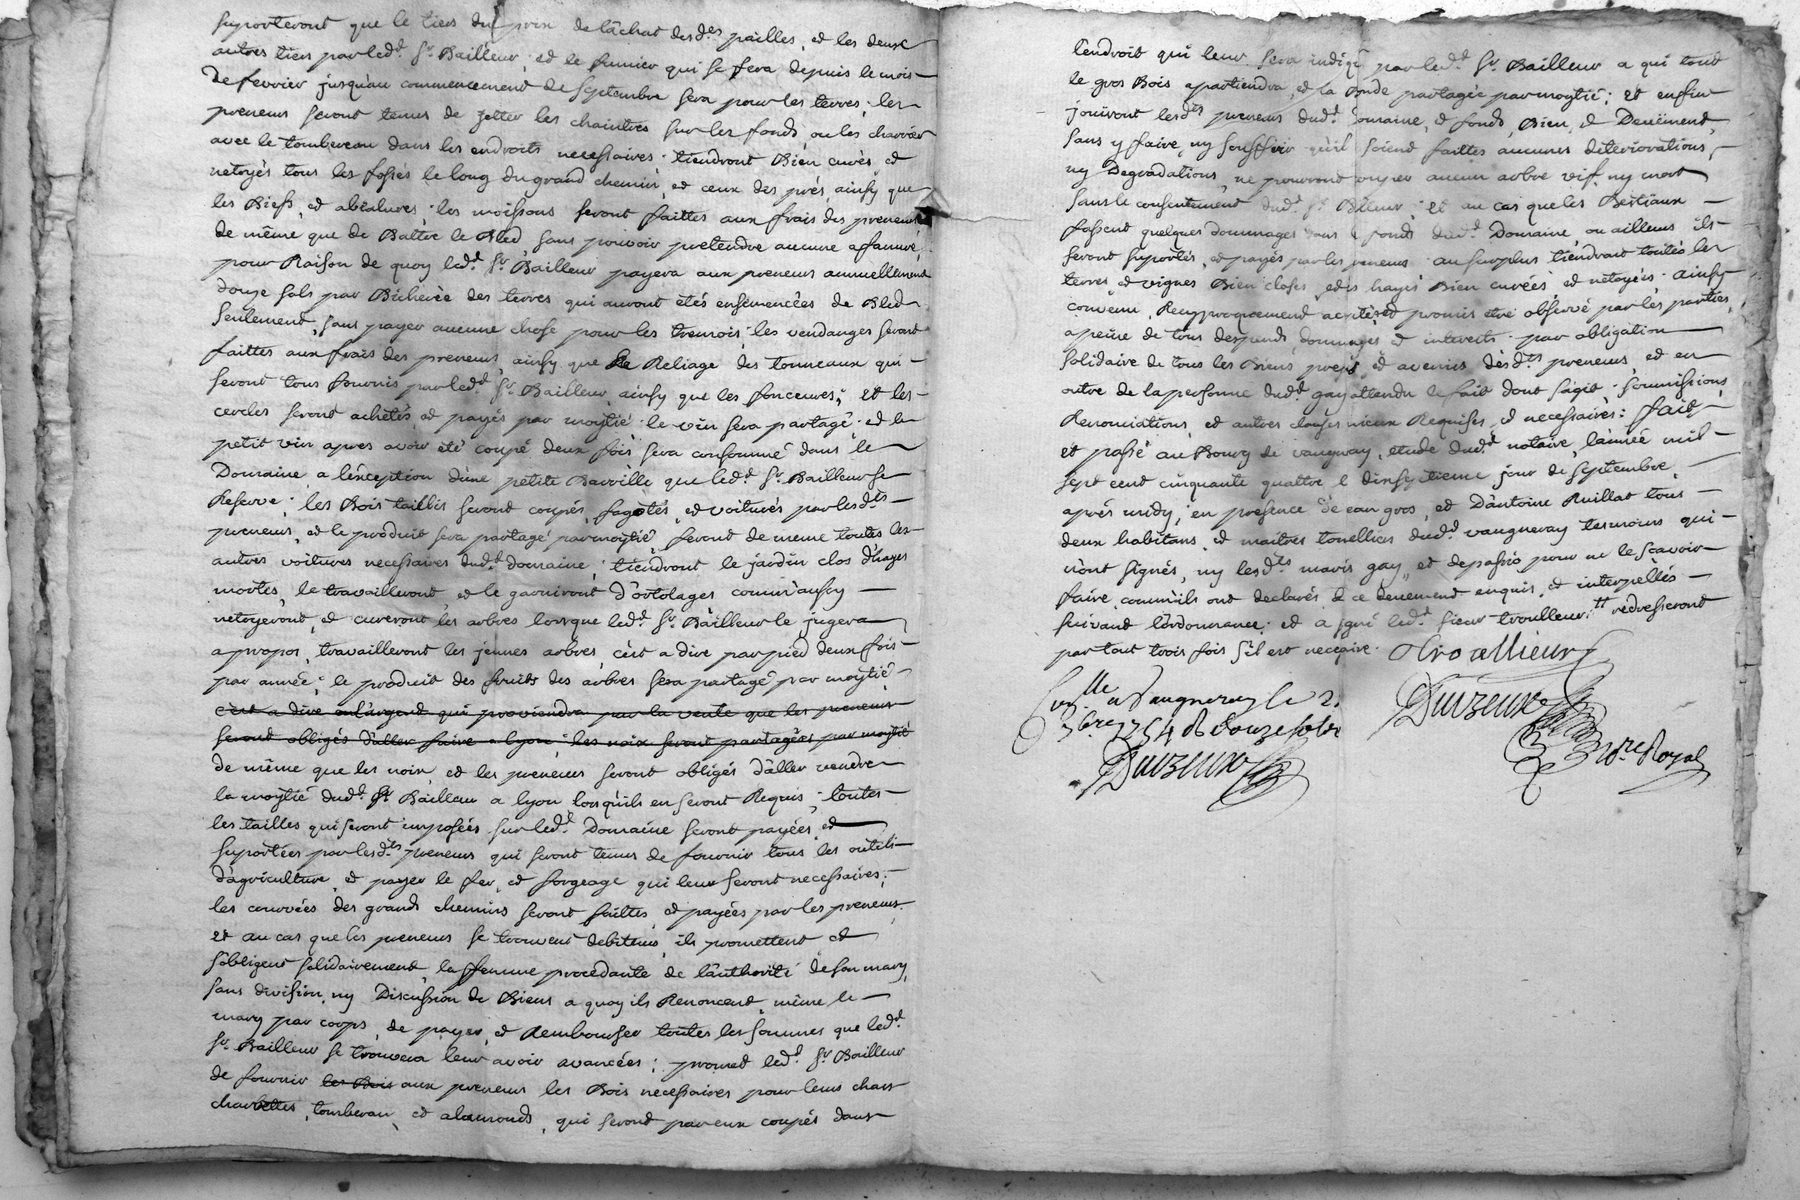 suporteront que le tiers du prix de lâchat desd.es pailles, et les deux
autres tiers par led.t S.r Bailleur et le fumier qui se fera depuis le mois
de fevrier jusqu'au commencement de septembre sera pour les terres; les
preneurs seront tenus de jetter les chaintres sur les fonds, ou les charrier
avec le tombereau dans les endroits necessaires; tiendront Bien curés et
netoyés tous les fossés le long du grand chemin, et ceux des prés, ainsy que
les Biefs, et abéalures; les moissons seront faittes aux frais des preneurs
de même que de Battre le Bled, sans pouvoir pretendre aucune affanure,
pour Raison de quoy led.t S.r Bailleur payera aux preneurs annuellement
douze sols par Bicherée des terres qui auront etés ensemencées de Bled
seulement, sans payer aucune chose pour les tremois; les vendanges seront
faittes aux frais des preneurs, ainsy que le Reliage des tonneaux qui
seront tous fournis par led.t S.r Bailleur, ainsy que les fonceures; et les
cercles seront achetés, et payés par moytié. le vin sera partagé, et le
petit vin apres avoir été coupé deux fois sera consommé dans le
Domaine a l'exception d'une petite Barrille que led.t S.r Bailleur se
Reserve; les Bois taillis seront coupés, fagotés, et voiturés par lesd.ts
preneurs, et le produit sera partagé par moytié, feront de meme toutes les
autres voitures necessaires dud.t domaine; tiendront le jardin clos d'hayes
mortes, le travailleront et le garniront d'ortolages comm'aussy
netoyeront, et cureront les arbres lorsque led.t S.r Bailleur le jugera
apropos, travailleront les jeunes arbres, c'est a dire par pied deux fois
par année; le produit des fruits des arbres sera partagé par moytié
c'est a dire en l'argent qui proviendra par la vente que les preneurs
seront obligés d'aller faire a lyon; les noix seront partagées par moytié
de même que les noix, et les preneurs seront obligés d'aller vendre
la moytié dud.t S.r Bailleur a lyon lorsqu'ils en seront Requis; toutes
les tailles qui seront imposées sur led.t Domaine seront payées, et
suportées par lesd.ts preneurs qui seront tenus de fournir tous les outils
d'agriculture, et payer le fer, et forgeage qui leur seront necessaires;
les courvées des grands chemins seront faittes, et payées par les preneurs.
et au cas que les preneurs se trouvent debiteurs, ils promettent et
s'obligent solidairement, la femme procédante de l'authorité de son mary,
sans division, ny Discussion de Biens a quoy ils Renoncent, même le
mary par corps, de payer, et Rembourser toutes les sommes que led.t
S.r Bailleur se trouvera leur avoir avancées; promet led.t S.r Bailleur
de fournir les Bois aux preneurs les Bois necessaires pour leurs chars
charrettes, tombereau, et alamonds, qui seront par eux coupés dans
l'endroit qui leur sera indiqué par led.t S.r Bailleur a qui tout
le gros Bois apartiendra, et la Bonde partagée par moytié; et enfin
jouïront lesd.ts preneurs dud.t Domaine, et fonds, Bien, et Deuëment,
sans y faire, ny souffrir qu'il soient faittes aucunes déteriorations,
ny Degradations, ne pourront couper aucun arbre vif, ny mort
sans le consentement dud.t S.r Bailleur; et au cas que les Bestiaux
fassent quelques dommages dans les fonds dud.t Domaine ou ailleurs ils
seront suportés, et payés par les preneurs. au surplus tiendront toutes les
terres, et vignes Bien closes, et les hayes Bien curées et netoyées. ainsy
convenu, Recyproquement accepté, et promis etre observé par les parties,
apeine de tous despends, dommages et interets. par obligation
solidaire de tous les Biens presens et avenirs desd.ts preneurs, et en
outre de la personne dud.t gay attendu le fait dont s'agit; soumissions,
Renonciations, et autres clauses mieux Requises, et necessaires: fait,
et passé au Bourg de vaugneray, etude dud.t notaire, l'année mil
sept cent cinquante quattre le dixseptieme jour de septembre
après midy, en presence de Jean gros, et D'antoine Ruillat tous
deux habitans, et maitres tonelliers dud.t vaugneray temoins qui
n'ont signés, ny lesd.ts mariés gay, et depassio pour ne le scavoir
faire, comm'ils ont declarés de ce deuement enquis, et interpellés
suivant l'ordonnance; et a signé led.t sieur trouilleur. tt redresseront
par tout trois fois s'il est necessaire.
Duizeux
n.re Royal
Con.lle a Vaugneray le 2.
8bre 1754 R douze sols
Duizeux